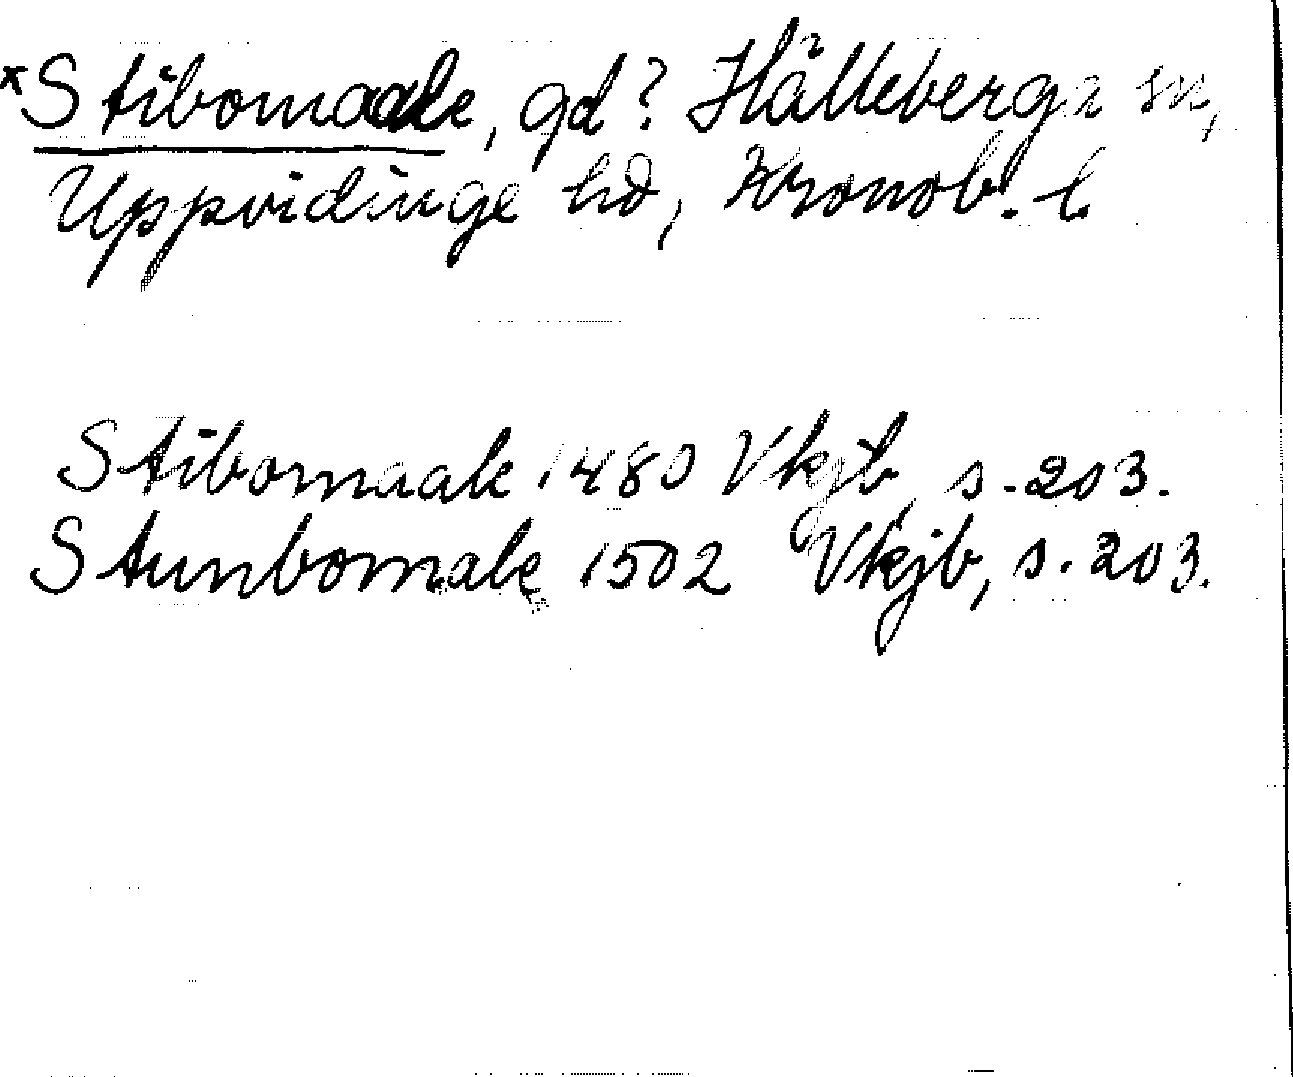 *Stibomaale, gd? Hälleberga sn,
Uppvidinge hd, Kronob. l.
Stibomaale 1480 Vkjb, s. 203.
Stunbomale 1502 Vkjb, s. 203.